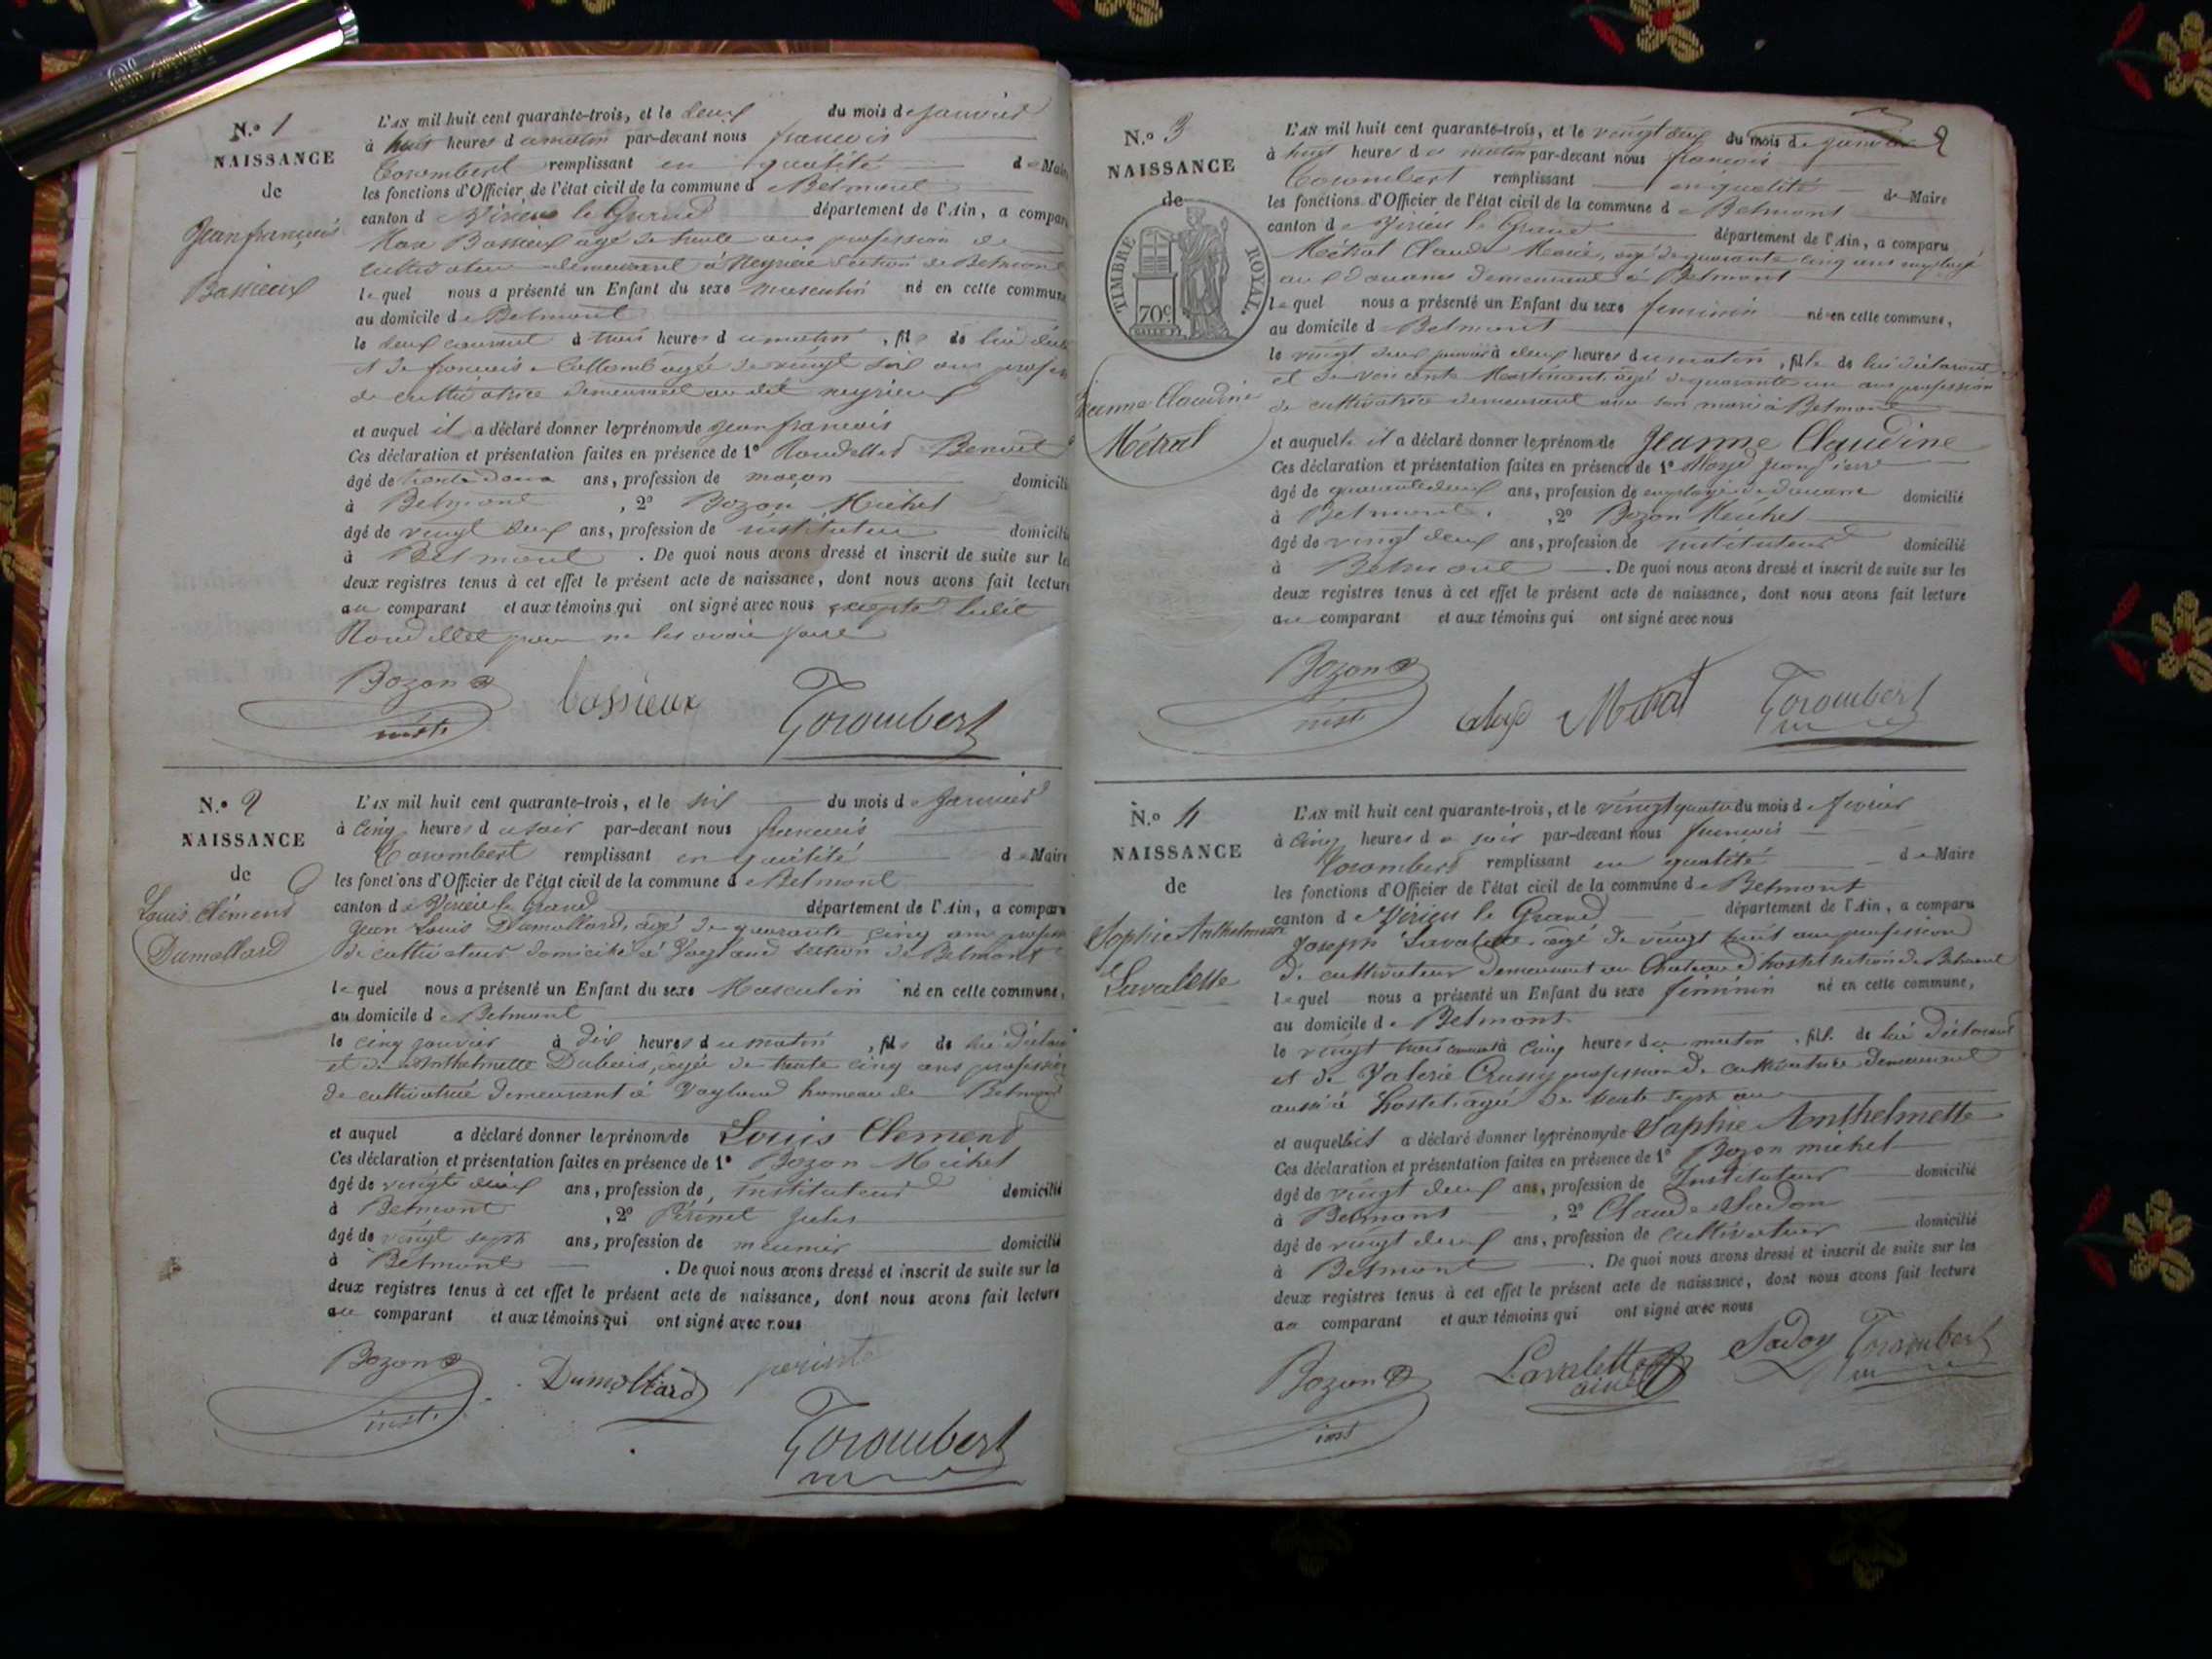 N.º 1
NAISSANCE
de
Jean françois
Bassieux
L'AN mil huit cent quarante-trois, et le deux du mois de janvier
à huit heures du matin par-devant nous francois
Torombert remplissant en qualité de Maire
les fonctions d'Officier de l'état civil de la commune de Belmont
canton de Virieu le Grand département de l'Ain, a comparu
Bassieux agé de trente ans profession de
cultivateur demeurant à section de Belmont
lequel nous a présenté un Enfant du sexe masculin né en cette commune
au domicile de Belmont
le deux courant à trois heures du matin, fils de lui
et de francoise agée de vingt six ans
de cultivatrice demeurant au dit
et auquel il a déclaré donner les prénoms de jean francois
Ces déclaration et présentation faites en présence de 1º Benoit
âgé de trente ans, profession de maçon domicilié
à Belmont, 2º Bozon Michel
âgé de vingt deux ans, profession de instituteur domicilié
à Belmont. De quoi nous avons dressé et inscrit de suite sur les
deux registres tenus à cet effet le présent acte de naissance, dont nous avons fait lecture
au comparant et aux témoins qui ont signé avec nous excepté ledit
pour ne les avoir
Bozon bassieux Torombert
inst.
N.º 2
NAISSANCE
de
Louis Clément
Dumollard
L'AN mil huit cent quarante-trois, et le six du mois de Janvier
à cinq heures du soir par-devant nous francois
Torombert remplissant en qualité de Maire
les fonctions d'Officier de l'état civil de la commune de Belmont
canton de Virieu le Grand département de l'Ain, a comparu
Jean Louis Dumollard, agé de quarante cinq ans profession
de cultivateur domicilié à section de Belmont
lequel nous a présenté un Enfant du sexe Masculin né en cette commune,
au domicile de Belmont
le cinq janvier à dix heures du matin, fils de lui
et de Anthelmette Dubois, agée de trente cinq ans profession
de cultivatrice demeurant à hameau de Belmont
et auquel a déclaré donner les prénoms de Louis Clement
Ces déclaration et présentation faites en présence de 1º Bozon Michel
âgé de vingt deux ans, profession de instituteur domicilié
à Belmont, 2º Jules
âgé de vingt sept ans, profession de meunier domicilié
à Belmont. De quoi nous avons dressé et inscrit de suite sur les
deux registres tenus à cet effet le présent acte de naissance, dont nous avons fait lecture
au comparant et aux témoins qui ont signé avec nous
Bozon Dumollard
inst.
Torombert
2
N.º 3
NAISSANCE
de
TIMBRE ROYAL
70c
Jeanne Claudine
Métral
L'AN mil huit cent quarante-trois, et le vingt deux du mois de janvier
à huit heures du matin par-devant nous francois
Torombert remplissant en qualité de Maire
les fonctions d'Officier de l'état civil de la commune de Belmont
canton de Virieu le Grand département de l'Ain, a comparu
Métral Claude Marie, agé de quarante cinq ans employé
au douanes demeurant à Belmont
lequel nous a présenté un Enfant du sexe feminin né en cette commune,
au domicile de Belmont
le vingt deux janvier à deux heures du matin, fille de lui déclarant
et de agée de quarante un ans profession
de cultivatrice demeurant avec son mari à Belmont
et auquelle il a déclaré donner les prénom de Jeanne Claudine
Ces déclaration et présentation faites en présence de 1º
âgé de quarante deux ans, profession de employé de douane domicilié
à Belmont, 2º Bozon Michel
âgé de vingt deux ans, profession de instituteur domicilié
à Belmont. De quoi nous avons dressé et inscrit de suite sur les
deux registres tenus à cet effet le présent acte de naissance, dont nous avons fait lecture
au comparant et aux témoins qui ont signé avec nous
Bozon Métral Torombert
inst
N.º 4
NAISSANCE
de
Sophie Anthelmette
Lavalette
L'AN mil huit cent quarante-trois, et le vingt quatre du mois de fevrier
à cinq heures du soir par-devant nous francois
Torombert remplissant en qualité de Maire
les fonctions d'Officier de l'état civil de la commune de Belmont
canton de Virieu le Grand département de l'Ain, a comparu
Joseph Lavalette agé de vingt huit ans profession
de cultivateur demeurant au Chateau d'hostel section de Belmont
lequel nous a présenté un Enfant du sexe féminin né en cette commune,
au domicile de Belmont
le vingt trois courant à cinq heures du matin, fille de lui déclarant
et de Valerie profession de cultivatrice demeurant
aussi à hostel agée de trente sept ans
et auquelle il a déclaré donner les prénoms de Sophie Anthelmette
Ces déclaration et présentation faites en présence de 1º Bozon michel
âgé de vingt deux ans, profession de Instituteur domicilié
à Belmont, 2º Claude
âgé de vingt deux ans, profession de cultivateur domicilié
à Belmont. De quoi nous avons dressé et inscrit de suite sur les
deux registres tenus à cet effet le présent acte de naissance, dont nous avons fait lecture
au comparant et aux témoins qui ont signé avec nous
Bozon Lavalette Torombert
inst